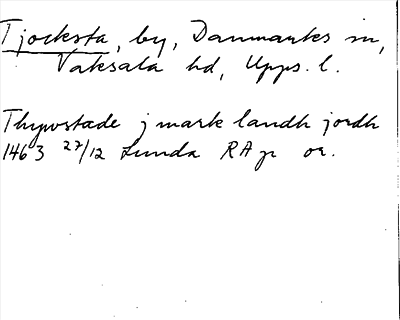 Tjocksta, by, Danmarks sn,
Vaksala hd, Upps. l.
Thywstade j mark landh jordh
1463 27/12 Lunda RAp or.